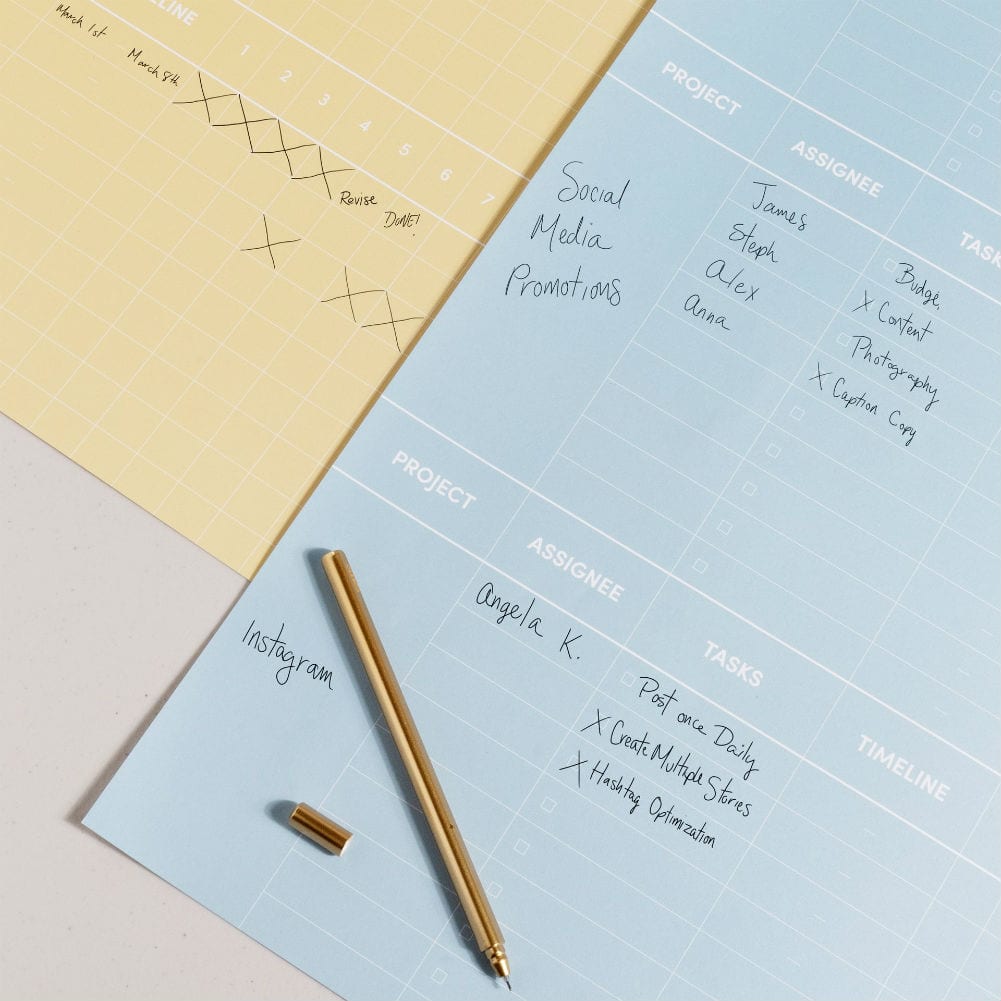 LINE
March 1st
March 8th
1 2 3 4 5 6 7
Revise
DONE!
PROJECT
ASSIGNEE
TASK
Social
Media
Promotions
James
Steph
Alex
Anna
Budge,
X Content
Photography
X Caption Copy
PROJECT
ASSIGNEE
TASKS
TIMELINE
Instagram
Angela K.
Post once Daily
X Create Multiple Stories
X Hashtag Optimization